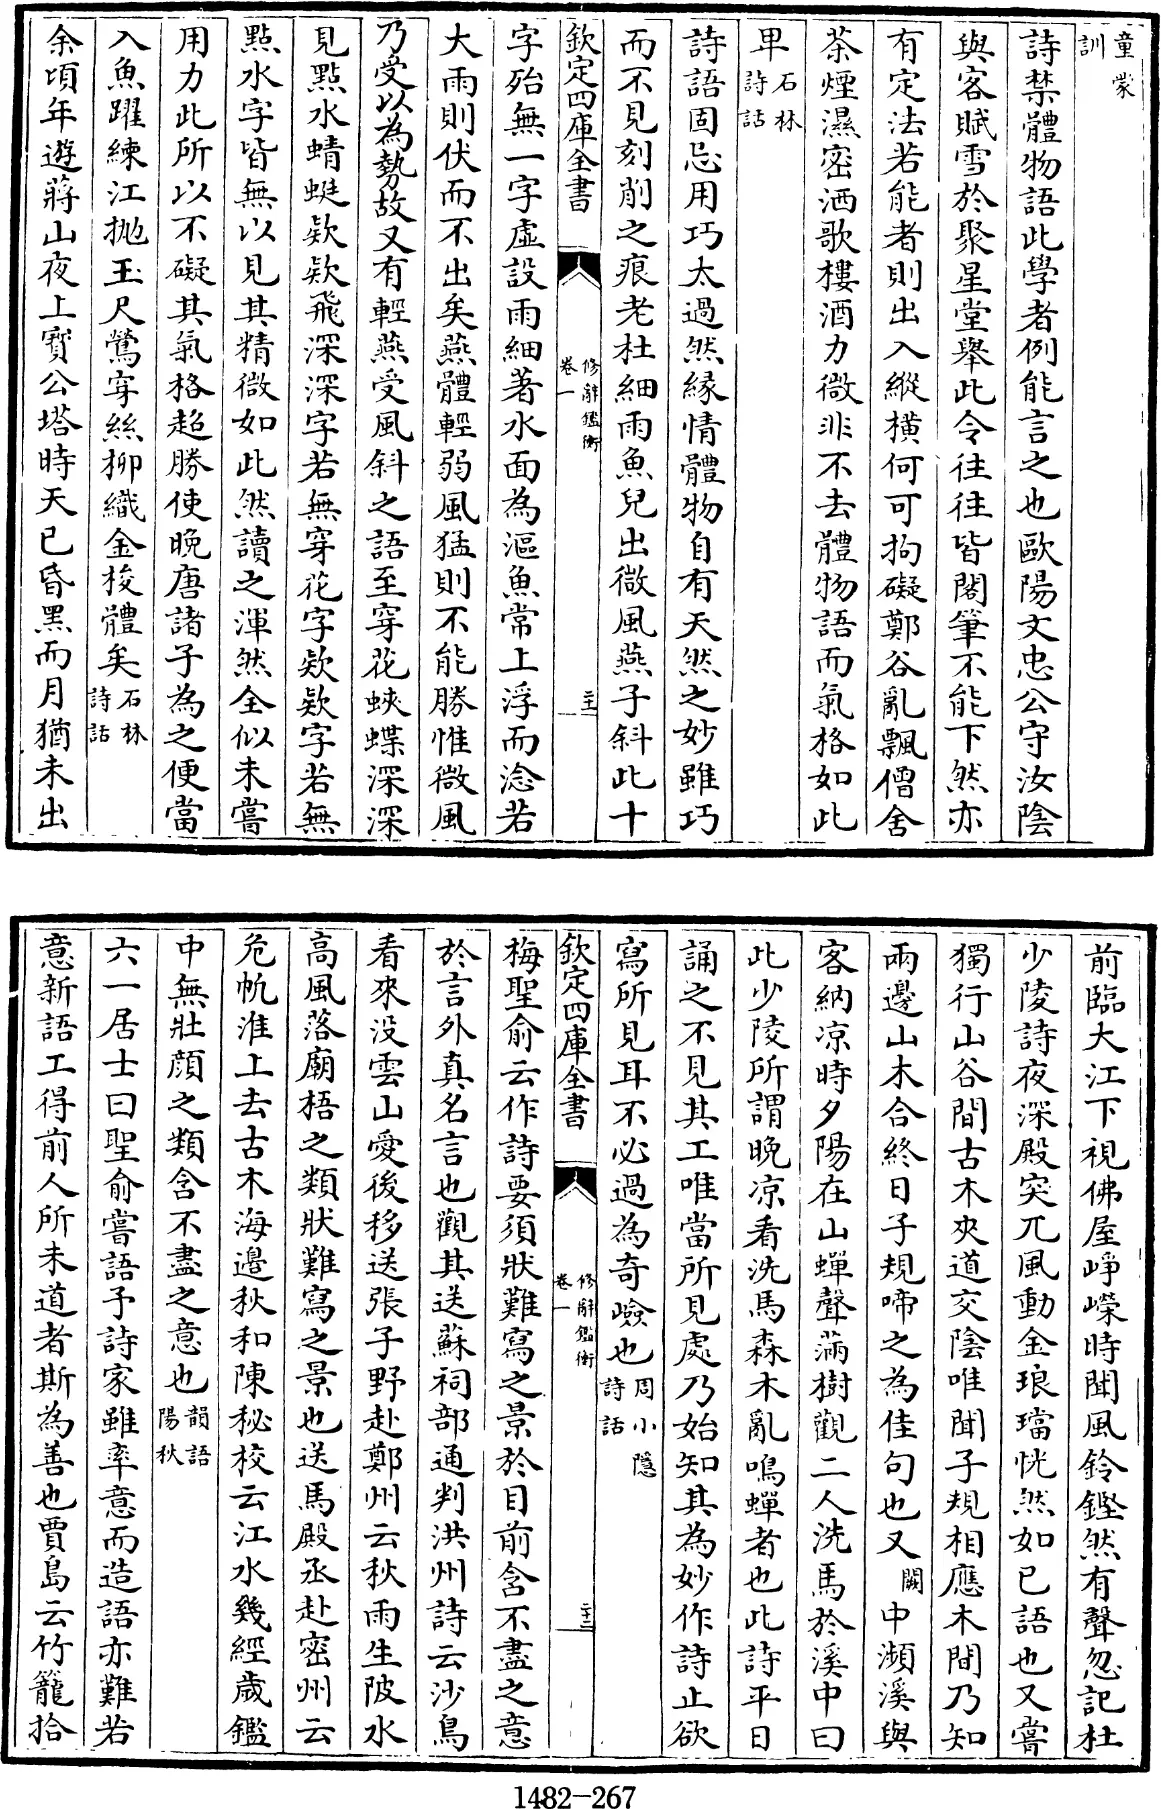 童蒙
訓
詩禁體物語此學者例能言之也歐陽文忠公守汝陰
與客賦雪於聚星堂舉此令往往皆閣筆不能下然亦
有定法若能者則出入縱横何可拘礙鄭谷亂飄僧舍
茶煙濕密洒歌樓酒力微非不去體物語而氣格如此
卑石林
詩話
詩語固忌用巧太過然緣情體物自有天然之妙雖巧
而不見刻削之痕老杜細雨魚兒出微風燕子斜此十
欽定四庫全書
修辭鑑衡
卷一
二十二
字殆無一字虛設雨細著水面為漚魚常上浮而淰若
大雨則伏而不出矣燕體輕弱風猛則不能勝惟微風
乃受以為勢故又有輕燕受風斜之語至穿花蛺蝶深深
見點水蜻蜓欵欵飛深深字若無穿花字欵欵字若無
點水字皆無以見其精微如此然讀之渾然全似未嘗
用力此所以不礙其氣格超勝使晚唐諸子為之便當
入魚躍練江抛玉尺鶯穿絲柳織金梭體矣石林
詩話
余頃年遊蔣山夜上寳公塔時天已昏黑而月猶未出
前臨大江下視佛屋崢嶸時聞風鈴鏗然有聲忽記杜
少陵詩夜深殿突兀風動金琅璫恍然如已語也又嘗
獨行山谷間古木夾道交陰唯聞子規相應木間乃知
兩邊山木合終日子規啼之為佳句也又闕中瀕溪與
客納凉時夕陽在山蟬聲滿樹觀二人洗馬於溪中曰
此少陵所謂晚凉看洗馬森木亂鳴蟬者也此詩平日
誦之不見其工唯當所見處乃始知其為妙作詩止欲
寫所見耳不必過為奇嶮也周小隱
詩話
欽定四庫全書
修辭鑑衡
卷一
二十三
梅聖俞云作詩要須狀難寫之景於目前含不盡之意
於言外真名言也觀其送蘇祠部通判洪州詩云沙鳥
看來沒雲山愛後移送張子野赴鄭州云秋雨生陂水
高風落廟梧之類狀難寫之景也送馬殿丞赴密州云
危帆淮上去古木海邊秋和陳秘校云江水幾經歳鑑
中無壯顔之類含不盡之意也韻語
陽秋
六一居士曰聖俞嘗語予詩家雖率意而造語亦難若
意新語工得前人所未道者斯為善也賈島云竹籠拾
1482-267